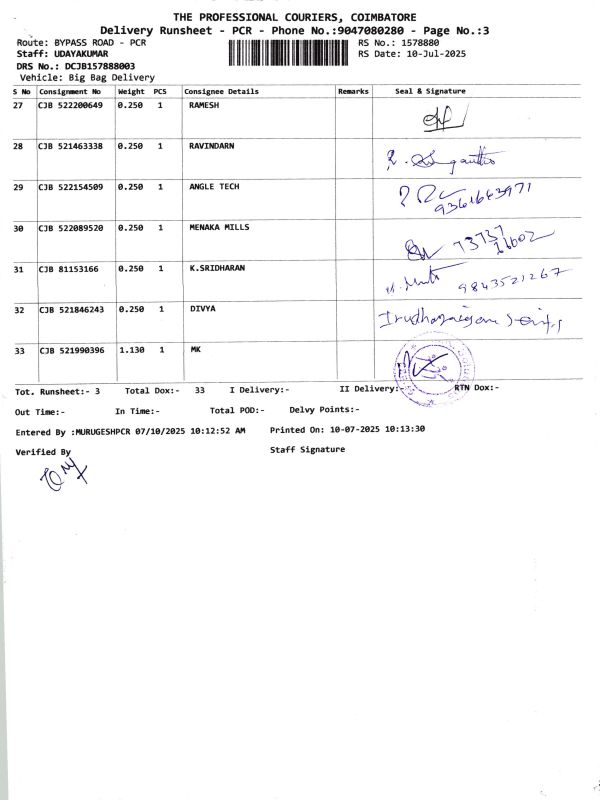 THE PROFESSIONAL COURIERS, COIMBATORE
Delivery Runsheet - PCR - Phone No.:9047080280 - Page No.:3
Route: BYPASS ROAD - PCR RS No.: 1578880
Staff: UDAYAKUMAR RS Date: 10-Jul-2025
DRS No.: DCJB157888003
Vehicle: Big Bag Delivery
S No Consignment No Weight PCS Consignee Details Remarks Seal & Signature
27 CJB 522200649 0.250 1 RAMESH
28 CJB 521463338 0.250 1 RAVINDARN
29 CJB 522154509 0.250 1 ANGLE TECH
9361643971
30 CJB 522089520 0.250 1 MENAKA MILLS
73737
31 CJB 81153166 0.250 1 K.SRIDHARAN
9843521267
32 CJB 521846243 0.250 1 DIVYA
33 CJB 521990396 1.130 1 MK
Tot. Runsheet:- 3 Total Dox:- 33 I Delivery:- II Delivery:- RTN Dox:-
Out Time:- In Time:- Total POD:- Delvy Points:-
Entered By :MURUGESHPCR 07/10/2025 10:12:52 AM Printed On: 10-07-2025 10:13:30
Verified By Staff Signature